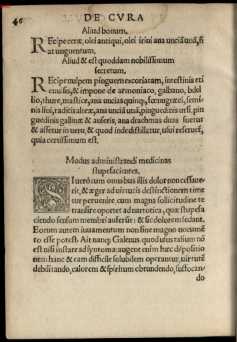 46
DE CVRA
Aliud bonum.
Recipe ceræ, olei antiqui, olei irini ana unciã unã, fi
at unguentum.
Aliud & est quoddam nobilissimum
secretum.
Recipe vulpem pinguem excoriatam, intestinis eie
ctis, & impone de armoniaco, galbano, bdel
lio, thure, mastice, ana uncias quinque, fœnugræci, semi-
nis lini, radicis altææ, ana unciã unã, pinguedinis ursi, pin
guedinis gallinæ & auseris, ana drachmas duas
& assetur in veru, & quod inde distillatur, usui reseruet,
quia certissimum est.
Modus administrandi medicinas
stupefacientes.
Si uerò cum omnibus illis dolor non cessaue-
rit, & æger ad uirtutis destructionem time
tur peruenire, cum magna sollicitudine te
transire oportet ad narcotica, quæ stupefa
ciendo sensum membri auferunt: & sic dolorem sedant.
Eorum autem iuuamentum non sine magno nocumen
to esse potest. Ait nanque Galenus, quod usus talium nõ
est nisi instare ad symptoma: augent enim hæc dispositio
nem hanc & eam difficile solubilem operantur, uirtutẽ
debilitando, calorem & spiritum obtundendo, suffocan-
do